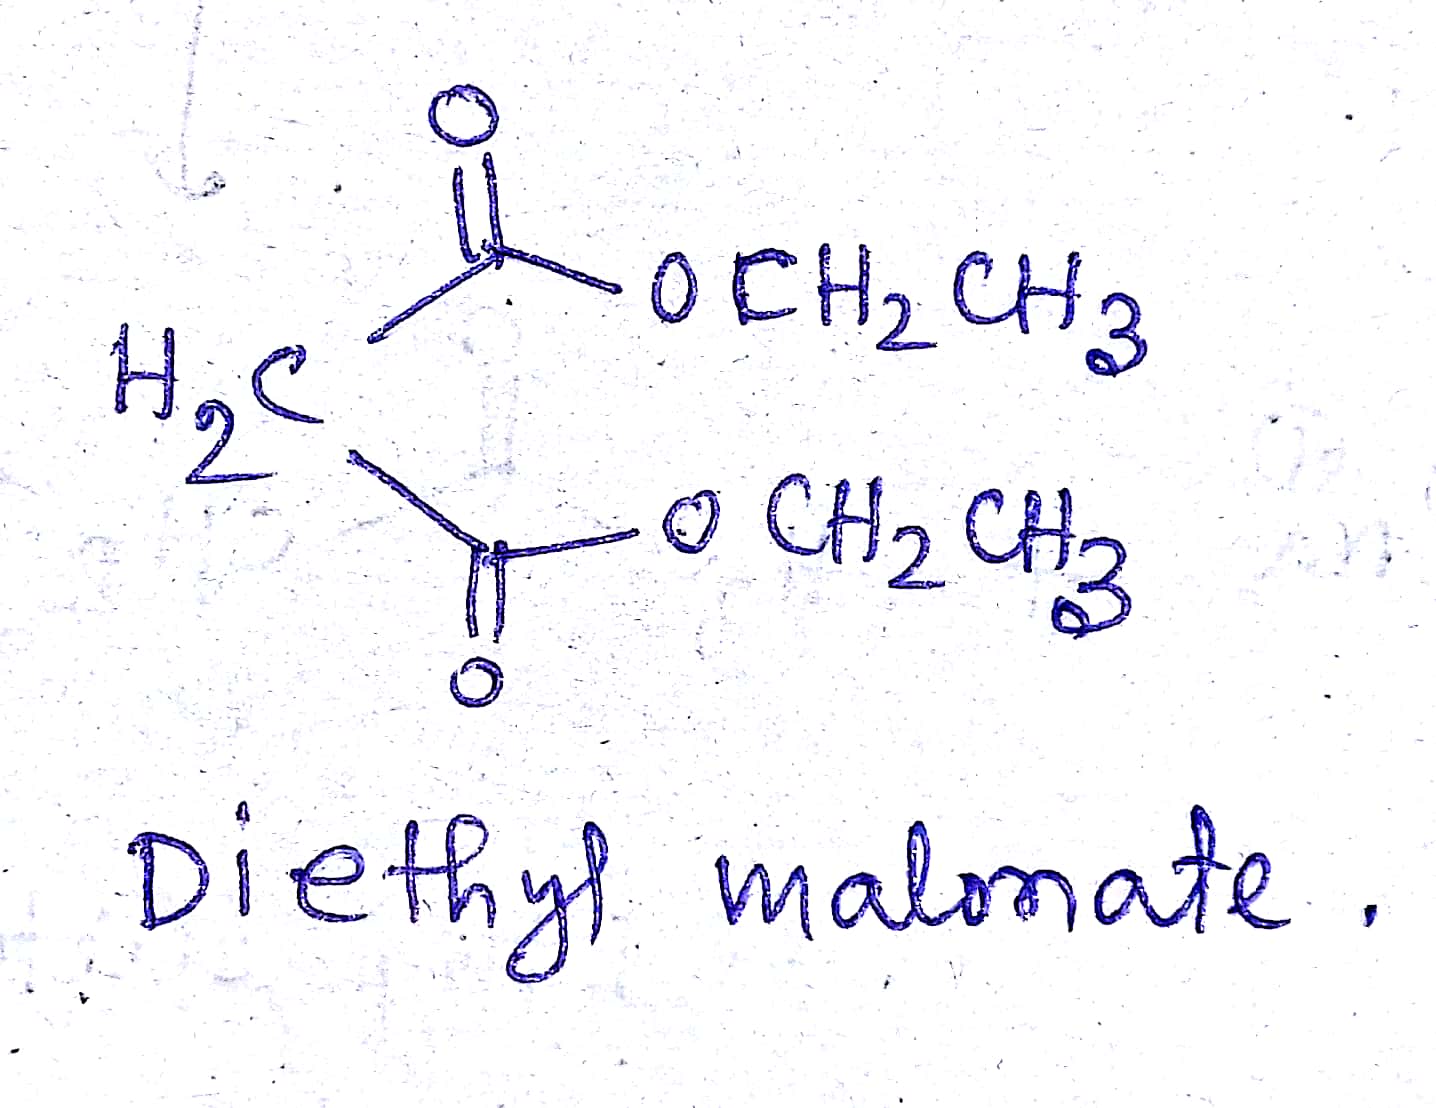 O
OCH2CH3
H2C
OCH2CH3
O
Diethyl malonate.